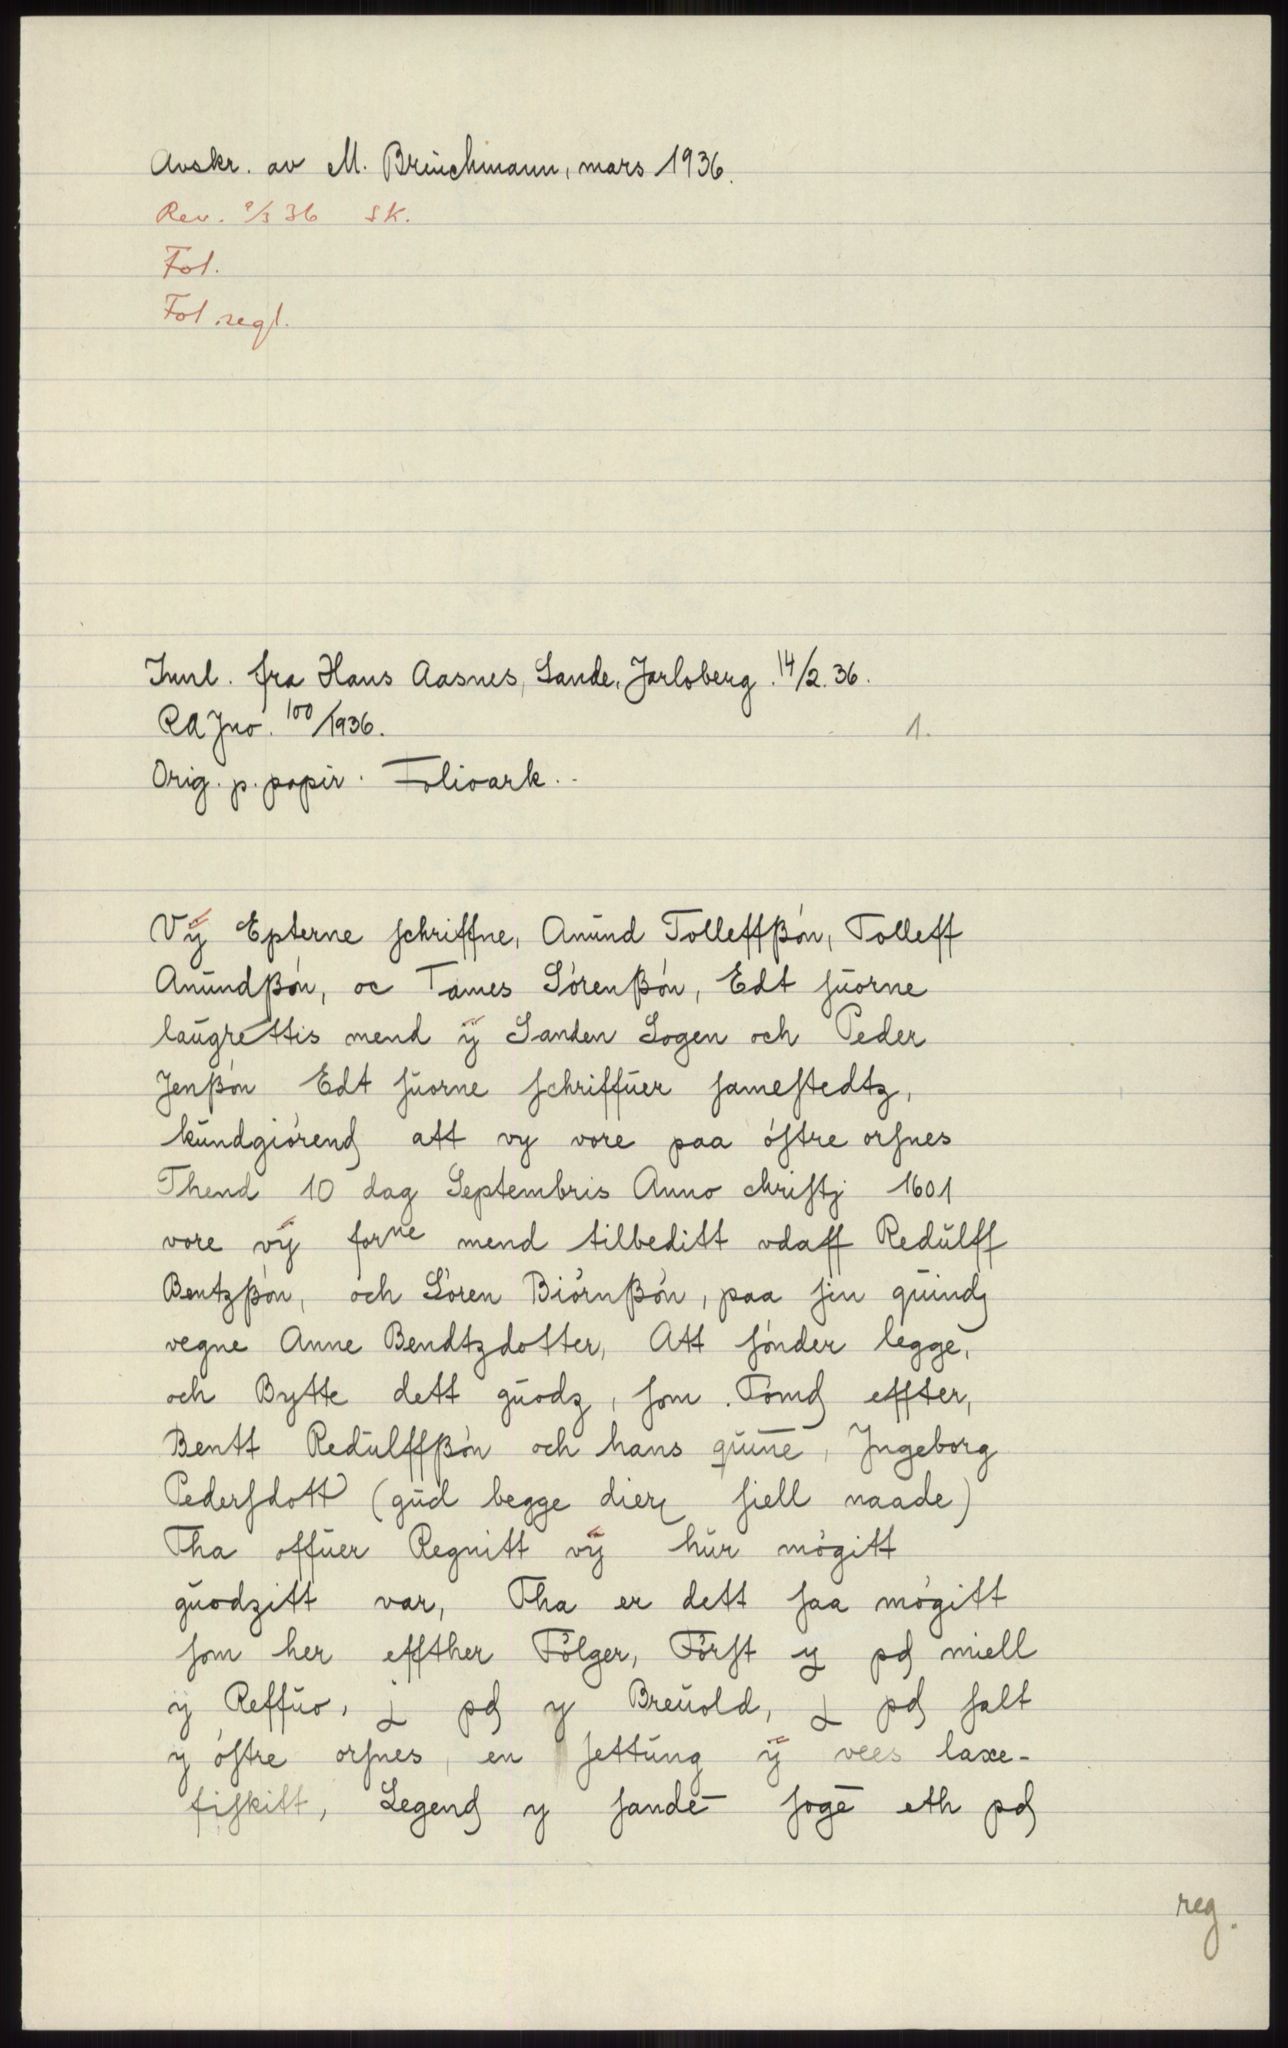 Avskr. av M. Brüichmann, mars 1936.
Rev. 9/3 36 SK.
Fot.
Fot segl.
Innl. fra Hans Aasnes, Sande, Jarlsberg. 14/2. 36.
RA Jno. 100/1936.
1.
Orig. p. papir. Folioark.
Vÿ Epterne schriffne, Anŭnd Tolleffßón, Tolleff
Anŭndßón, oc Tames Sórenßón, Edt sŭorne
laŭgrettis mend ÿ Sanden Sogen och Peder
Jenßón Edt sŭorne schriffŭer samestedtz,
kŭndgiórend att vy vore paa óstre orsnes
Thend 10 dag Septembris Anno christj 1601
vore vÿ forne mend tilbeditt vdaff Redŭlff
Bentzßón, och Sóren Biórnßón, paa sin qŭind
vegne Anne Bendtzdotter, Att sónder legge,
och Bytte dett gŭodz, som Tomd effter,
Bentt Redŭlffßón och hans qŭinē, Jngeborg
Pedersdott (gŭd begge dierꝭ siell naade)
Tha offŭer Regnitt vÿ hŭr mógitt
gŭodzitt var, Tha er dett saa mógitt
som her effther Fólger, Fórst y pd miell
ÿ Reffŭo, j pd y Breŭold, j pd salt
y óstre orsnes, en settŭng ÿ vees laxe-
fiskitt, Legend y sandē sogē eth pd
reg.